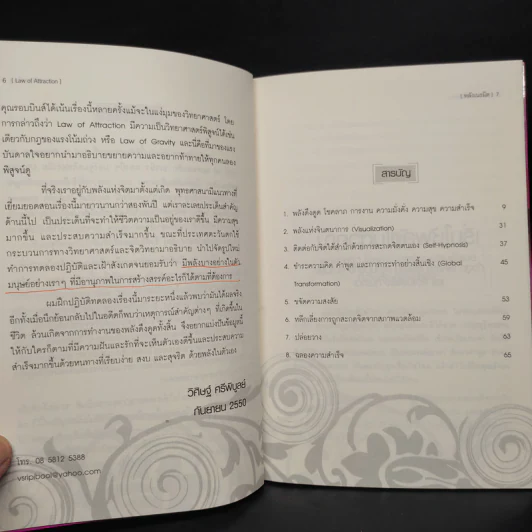 6 [ Law of Attraction ]
คุณรอบบินส์ได้เน้นเรื่องนี้หลายครั้งแม้จะในแง่มุมของวิทยาศาสตร์ โดย
การกล่าวถึงว่า Law of Attraction มีความเป็นวิทยาศาสตร์พิสูจน์ได้เช่น
เดียวกับกฎของแรงโน้มถ่วง หรือ Law of Gravity และนี่คือที่มาของแรง
บันดาลใจอยากนำมาอธิบายขยายความและอยากท้าทายให้ทุกคนลอง
พิสูจน์ดู
ที่จริงเราอยู่กับพลังแห่งจิตมาตั้งแต่เกิด พุทธศาสนามีแนวทางที่
เยี่ยมยอดสอนเรื่องนี้มายาวนานกว่าสองพันปี แต่เราละเลยประเด็นสำคัญ
ด้านนี้ไป เป็นประเด็นที่จะทำให้ชีวิตความเป็นอยู่ของเราดีขึ้น มีความสุข
มากขึ้น และประสบความสำเร็จมากขึ้น ขณะที่ประเทศตะวันตกใช้
กระบวนการทางวิทยาศาสตร์และจิตวิทยามาอธิบาย นำไปใช้จัดรูปใหม่
ทำการทดลองปฏิบัติและเฝ้าสังเกตจนยอมรับว่า มีพลังบางอย่างในตัว
มนุษย์อย่างเราๆ ที่มีอานุภาพในการสร้างสรรค์อะไรก็ได้ตามที่ต้องการ
ผมฝึกปฏิบัติทดลองเรื่องนี้มาระยะหนึ่งแล้วพบว่ามันได้ผลจริง
อีกทั้งเมื่อนึกย้อนกลับไปในอดีตก็พบว่าเหตุการณ์สำคัญต่างๆ ที่เกิดขึ้นใน
ชีวิต ล้วนเกิดจากการทำงานของพลังดึงดูดทั้งสิ้น จึงอยากแบ่งปันข้อมูลนี้
ให้กับใครก็ตามที่มีความฝันและรักที่จะเห็นตัวเองดีขึ้นและประสบความ
สำเร็จมากขึ้นด้วยหนทางที่เรียบง่าย สงบ และสุจริต ด้วยพลังในตัวเอง
วิศิษฐ์ ศรีพิบูลย์
กันยายน 2550
โทร. 08 5812 5388
vsripibool@yahoo.com
[ พลังแม่เหล็ก ] 7
สารบัญ
1. พลังดึงดูด โชคลาภ การงาน ความมั่งคั่ง ความสุข ความสำเร็จ 9
2. พลังแห่งจินตนาการ (Visualization) 31
3. ติดต่อกับจิตใต้สำนึกด้วยการสะกดจิตตนเอง (Self-Hypnosis) 37
4. ชำระความคิด คำพูด และการกระทำอย่างสิ้นเชิง (Global 45
Transformation)
5. ขจัดความสงสัย 53
6. หลีกเลี่ยงการถูกสะกดจิตจากสภาพแวดล้อม 59
7. ปล่อยวาง 63
8. ฉลองความสำเร็จ 65